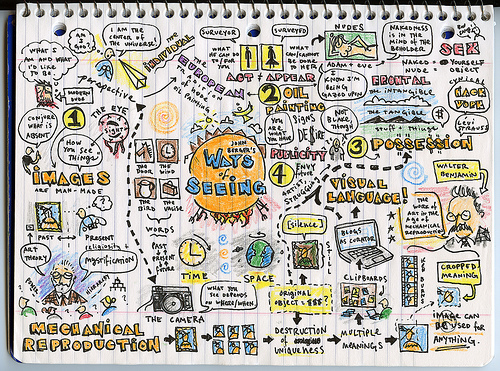 AM I GOD?
I AM THE
CENTER OF
THE UNIVERSE.
WHAT'S
AM AND WHAT
I'D LIKE
TO BE.
MODERN
perspective
THE
INDIVIDUAL
THE
EUROPEAN
OIL PAINTING
SURVEYOR
WHAT
HE CAN
DO
TO/FOR
YOU
SURVEYED
WHAT
CAN/CANNOT
BE DONE
TO HER
ACT ≠ APPEAR
NUDES
ADAM + EVE
NAKEDNESS
IS IN THE
MIND OF THE
BEHOLDER
NAKED ≠ NUDE
SEX
YOURSELF
OBJECT
KNOW I'M
BEING
GAZED UPON
FRONTAL
THE INTANGIBLE
THE TANGIBLE
stuff + things
HACK
WORK
LEVI
STRAUSS
NOT
BLAKE
THOUGH
3 POSSESSION
2
OIL
PAINTING
YOU
ARE
WHAT
YOU
HAVE
SIGNS
OF
DESIRE
PUBLICITY
4
1
CONJURE
WHAT IS
ABSENT
THE EYE
sight
HOW WE
SEE
THINGS
IMAGES
ARE MAN-MADE
PAST
PRESENT
religiosity
ART
THEORY
Mystification
THE
DOOR
THE
WIND
THE
BIRD
THE
VALISE
WORDS
PAST
PRESENT
+ FUTURE
JOHN
BERGER'S
WAYS
of
SEEING
TIME
SPACE
WHAT YOU
SEE DEPENDS
ON WHERE/WHEN
THE CAMERA
[silence]
STILL
ORIGINAL
OBJECT
VISUAL
LANGUAGE!
BLOGS
AS CURATOR
CLIPBOARDS
THE
WORK OF
ART IN THE
AGE OF
MECHANICAL
REPRODUCTION
WALTER
BENJAMIN
KEN BURNS
CROPPED
MEANING
IMAGE CAN
BE USED FOR
ANYTHING.
MECHANICAL
REPRODUCTION
DESTRUCTION
OF
UNIQUENESS
MULTIPLE
MEANINGS